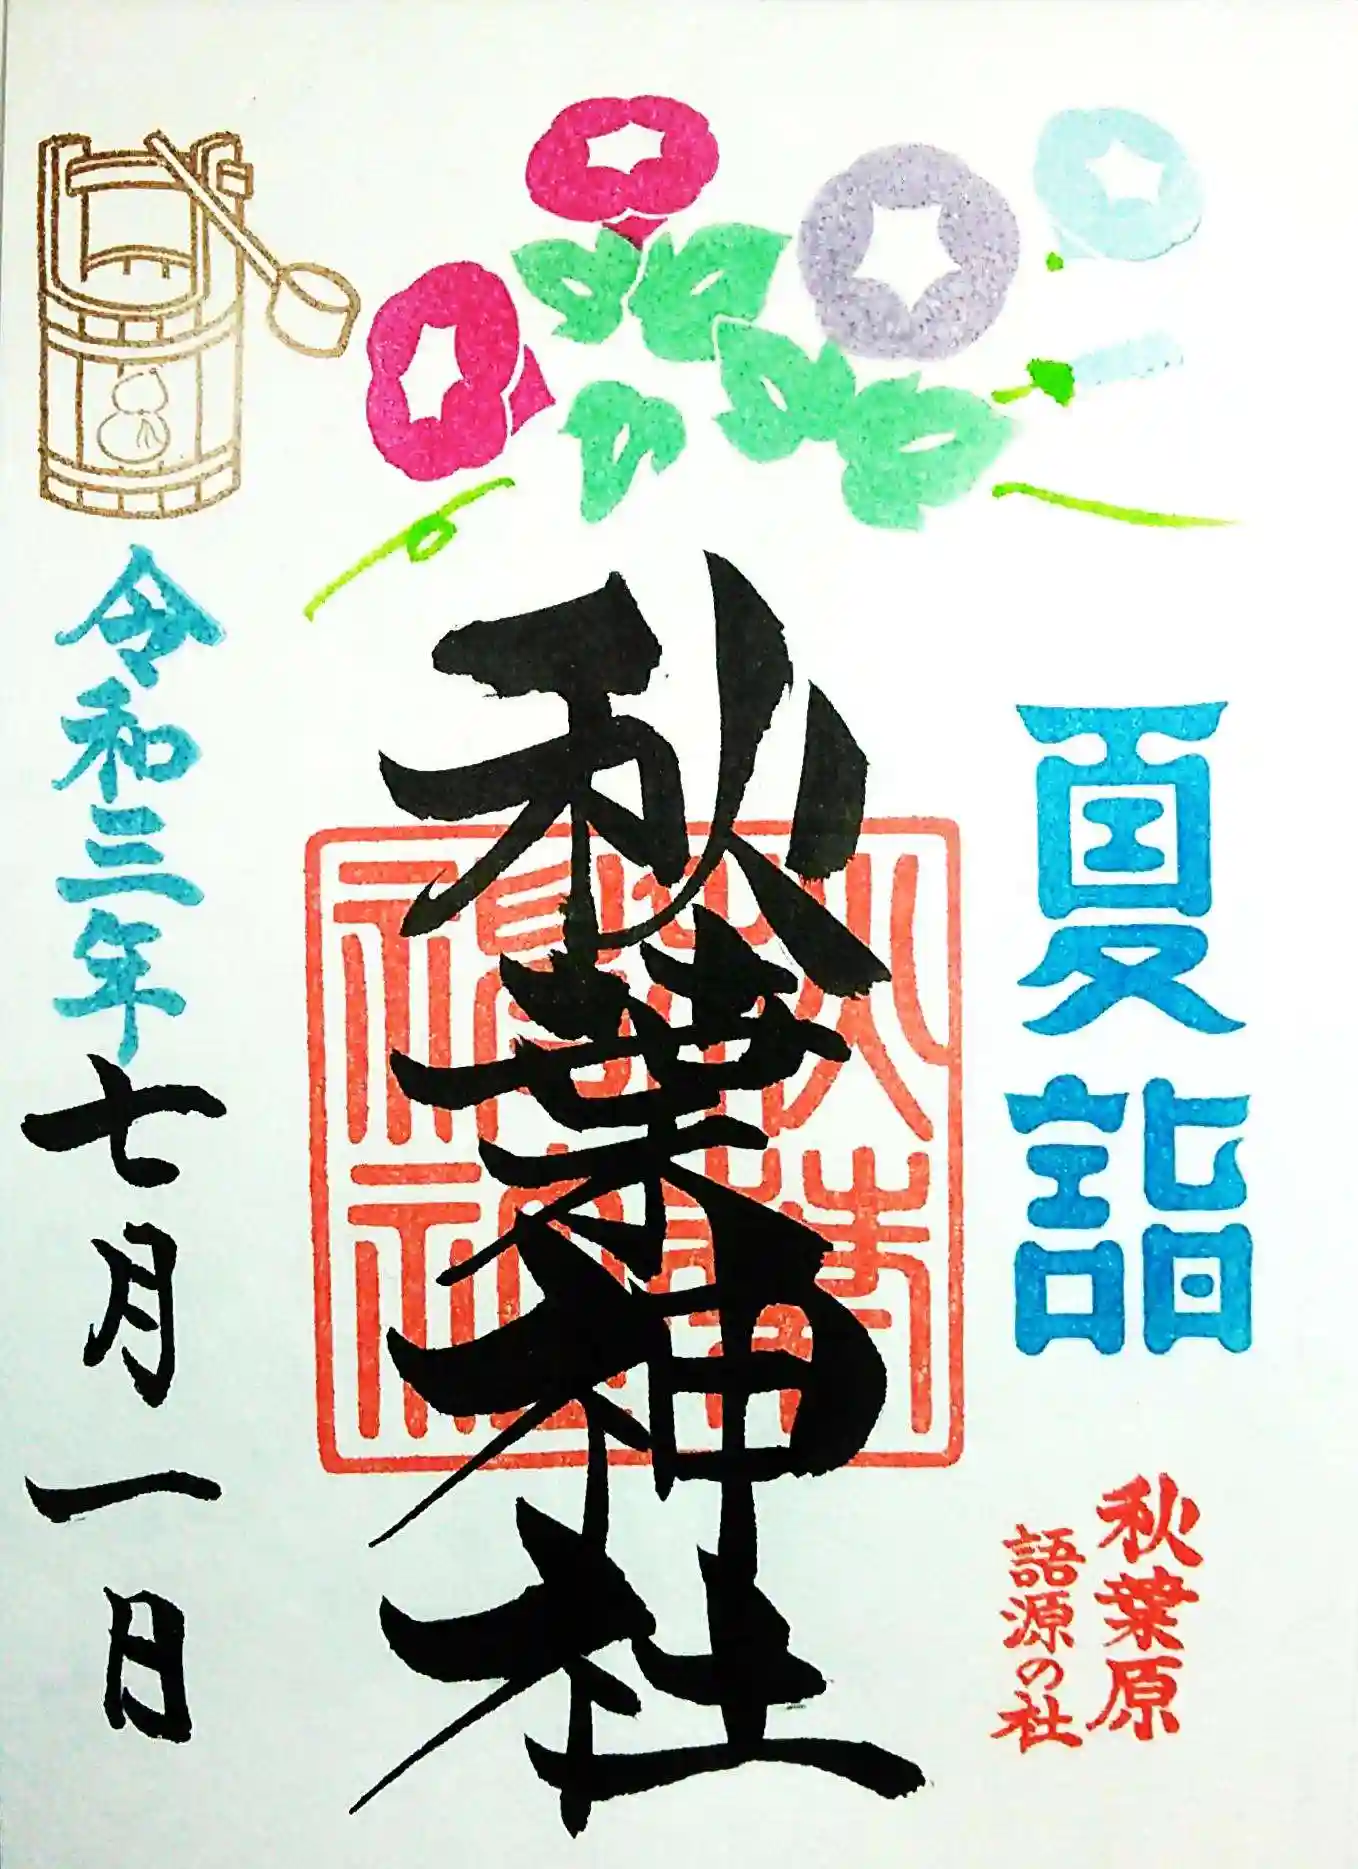 夏詣
秋葉原
語源の社
秋葉神社
令和三年七月一日